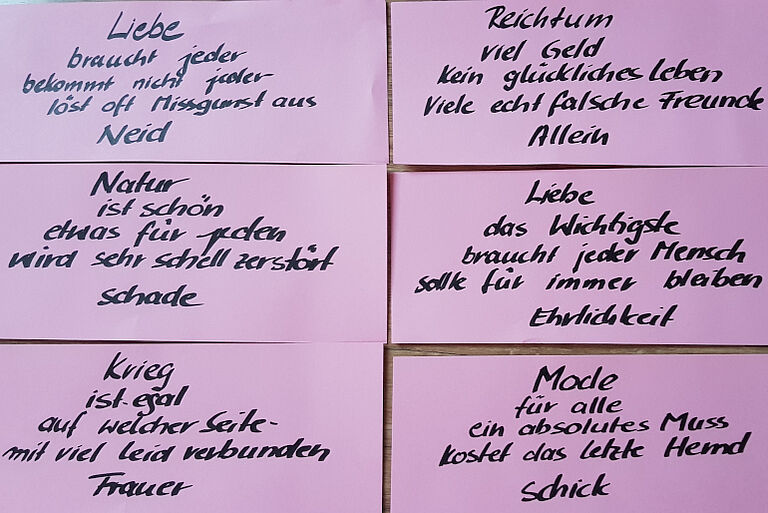 Liebe
braucht jeder
bekommt nicht jeder
löst oft Missgunst aus
Neid
Reichtum
viel Geld
Kein glückliches Leben
Viele echt falsche Freunde
Allein
Natur
ist schön
etwas für jeden
wird sehr schell zerstört
schade
Liebe
das Wichtigste
braucht jeder Mensch
sollte für immer bleiben
Ehrlichkeit
Krieg
ist egal
auf welcher Seite-
mit viel Leid verbunden
Trauer
Mode
für alle
ein absolutes Muss
kostet das letzte Hemd
schick